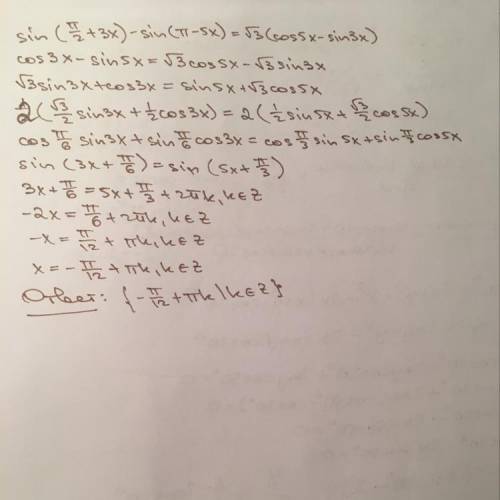 sin(π/2+3x)-sin(π-5x)=√3(cos5x-sin3x)
cos3x-sin5x=√3cos5x-√3sin3x
√3sin3x+cos3x=sin5x+√3cos5x
2(√3/2 sin3x+1/2 cos3x)=2(1/2 sin5x+√3/2 cos5x)
cos π/6 sin3x+sin π/6 cos3x=cos π/3 sin5x+sin π/3 cos5x
sin(3x+π/6)=sin(5x+π/3)
3x+π/6=5x+π/3+2πk,k∈Z
-2x=π/6+2πk,k∈Z
-x=π/12+πk,k∈Z
x=-π/12+πk,k∈Z
Ответ: {-π/12+πk|k∈Z}